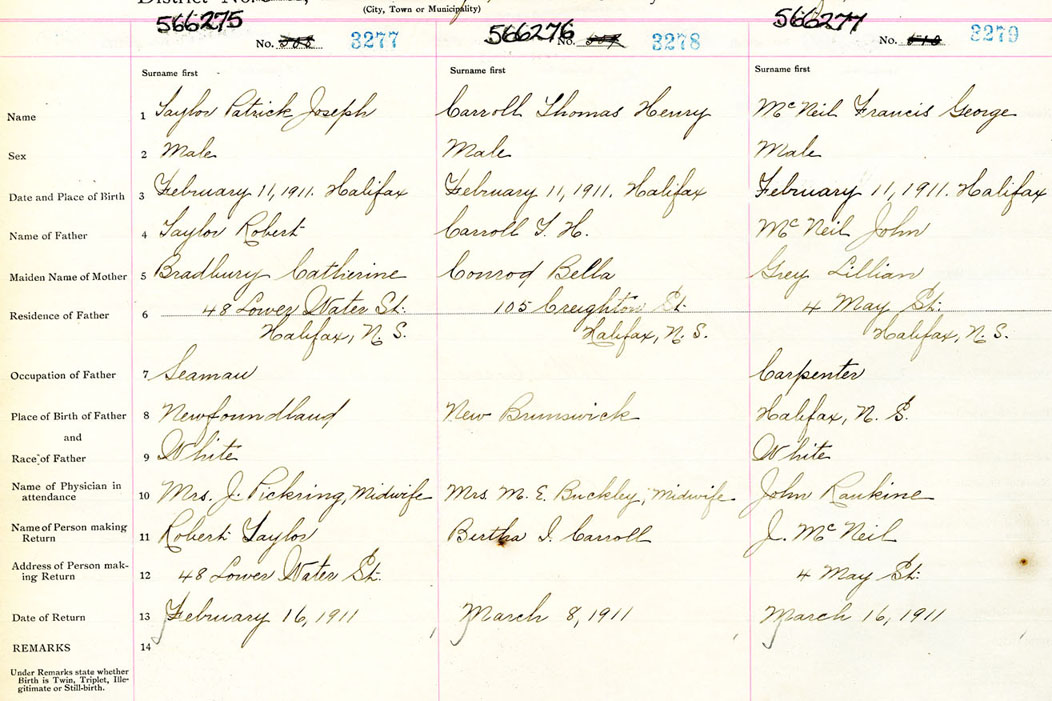 District No.
(City, Town or Municipality)
566275 566276 566277
No. 3277 No. 3278 No. 3279
Surname first Surname first Surname first
Name 1 Taylor Patrick Joseph Carroll Thomas Henry McNeil Francis George
Sex 2 Male Male Male
Date and Place of Birth 3 February 11, 1911. Halifax February 11, 1911. Halifax February 11, 1911. Halifax
Name of Father 4 Taylor Robert Carroll T. H. McNeil John
Maiden Name of Mother 5 Bradbury Catherine Conrod Bella Grey Lillian
Residence of Father 6 48 Lower Water St. 105 Creighton St. 4 May St.
Halifax, N. S. Halifax, N. S. Halifax, N. S.
Occupation of Father 7 Seaman Carpenter
Place of Birth of Father 8 Newfoundland New Brunswick Halifax, N. S.
and
Race of Father 9 White White
Name of Physician in
attendance 10 Mrs. J. Pickring, Midwife Mrs M. E. Buckley, Midwife John Rankine
Name of Person making
Return 11 Robert Taylor Bertha I. Carroll J. McNeil
Address of Person mak-
ing Return 12 48 Lower Water St. 4 May St.
Date of Return 13 February 16, 1911 March 8, 1911 March 16, 1911
REMARKS 14
Under Remarks state whether
Birth is Twin, Triplet, Ille-
gitimate or Still-birth.